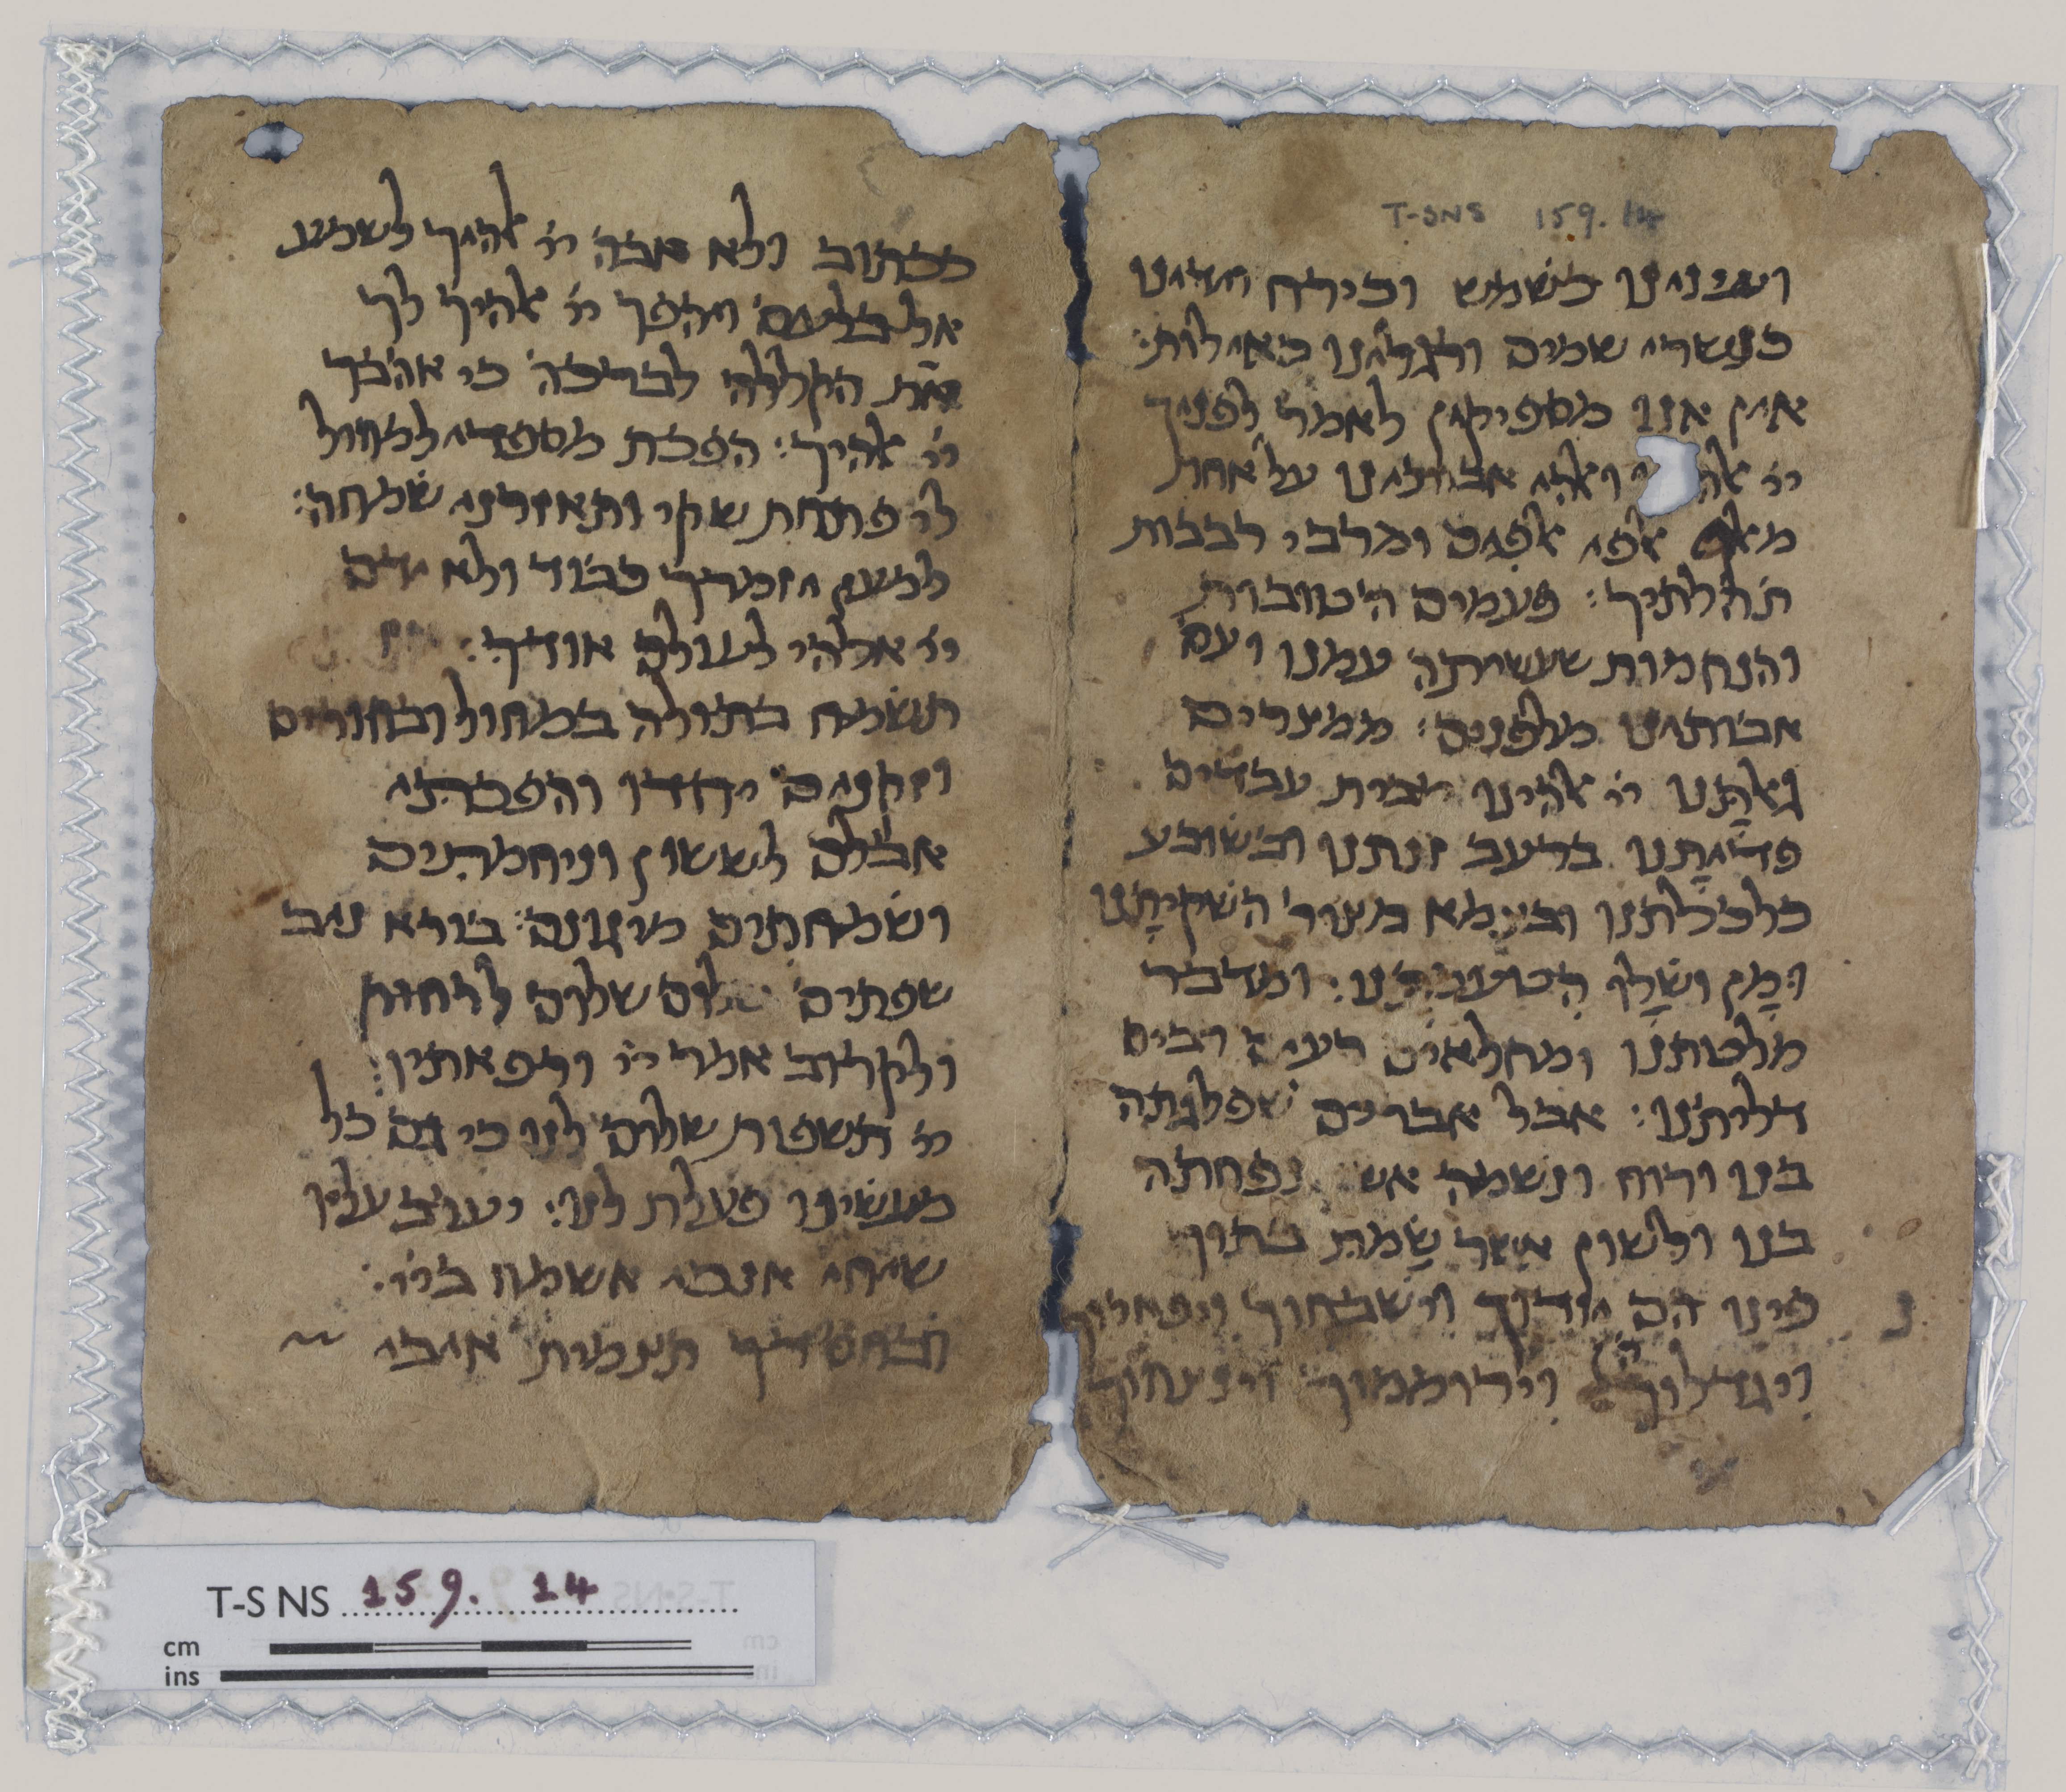 T-S NS 159.14
ועינינו כשמש וכירח וידינו
כנשרי שמים ורגלינו כאילות:
אין אנו מספיקין לאמר לפניך
ייי אלה ואלהי אבותינו על אחת
מאלף אלפי אלפים ורבי רבבות
תהלתיך: פעמים הטובות
והנחמות שעשיתה עמנו ועם
אבותינו מלפנים: ממצרים
גאלתנו ייי אלהינו מבית עבדים
פדיתנו ברעב זנתנו ובשובע
כלכלתנו ובצמא מצור השקיתנו
ומן ושלו הטעמתנו: ומדבר
מלטתנו ומחלאים רעים רבים
דליתנו: אבל אברים שפלגתה
בנו ורוח ונשמה אש נפחתה
בנו ולשון אשר שמת בתוך
פינו הם יודוך וישבחוך ויפארוך
ויגדלוך וירוממוך וינצחוך
ככתוב ולא אבה ייי אלהיך לשמע
אל בלעם ויהפך ייי אלהיך לך
את הקללה לברכה כי אהבך
ייי אלהיך: הפכת מספדי למחול
לי פתחת שקי ותאזרני שמחה:
למען יזמרך כבוד ולא ידם
ייי אלהי לעולם אודך:
תשמח בתולה במחול ובחורים
וזקנים יחדו והפכתי
אבלם לששון וניחמתים
ושמחתים מיגונם: בורא ניב
שפתים שלום שלום לרחוק
ולקרוב אמר ייי ורפאתיו:
ייי תשפות שלום לנו כי גם כל
מעשינו פעלת לנו: יערב עליו
שיחי אנכי אשמח בייי:
ובחסדך תצמית איבי
T-S NS 159. 14
cm
ins